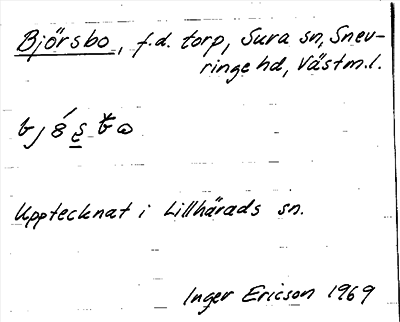 Björsbo, f.d. torp, Sura sn, Snev-
ringe hd, Västm.l.
Upptecknat i Lillhärads sn.
Inger Ericson 1969